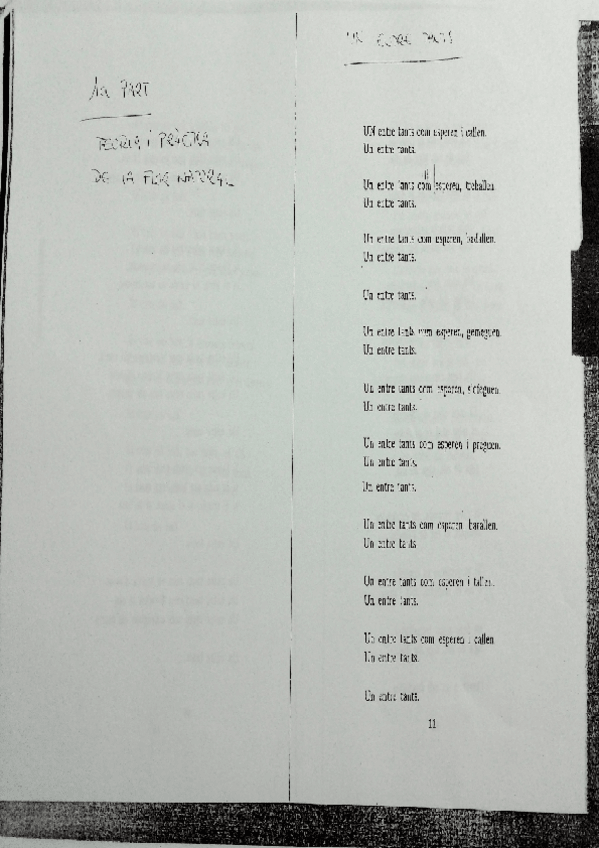 1a PART
TEORIA I PRÀCTICA
DE LA FLOR NATURAL
UN ENTRE TANTS
UN entre tants com esperen i callen.
Un entre tants.
Un entre tants com esperen, treballen.
Un entre tants.
Un entre tants com esperen, badallen.
Un entre tants.
Un entre tants.
Un entre tants com esperen, gemeguen.
Un entre tants.
Un entre tants com esperen, s'ofeguen.
Un entre tants.
Un entre tants com esperen i preguen.
Un entre tants.
Un entre tants.
Un entre tants com esperen, barallen.
Un entre tants
Un entre tants com esperen i tallen.
Un entre tants.
Un entre tants com esperen i callen.
Un entre tants.
Un entre tants.
11